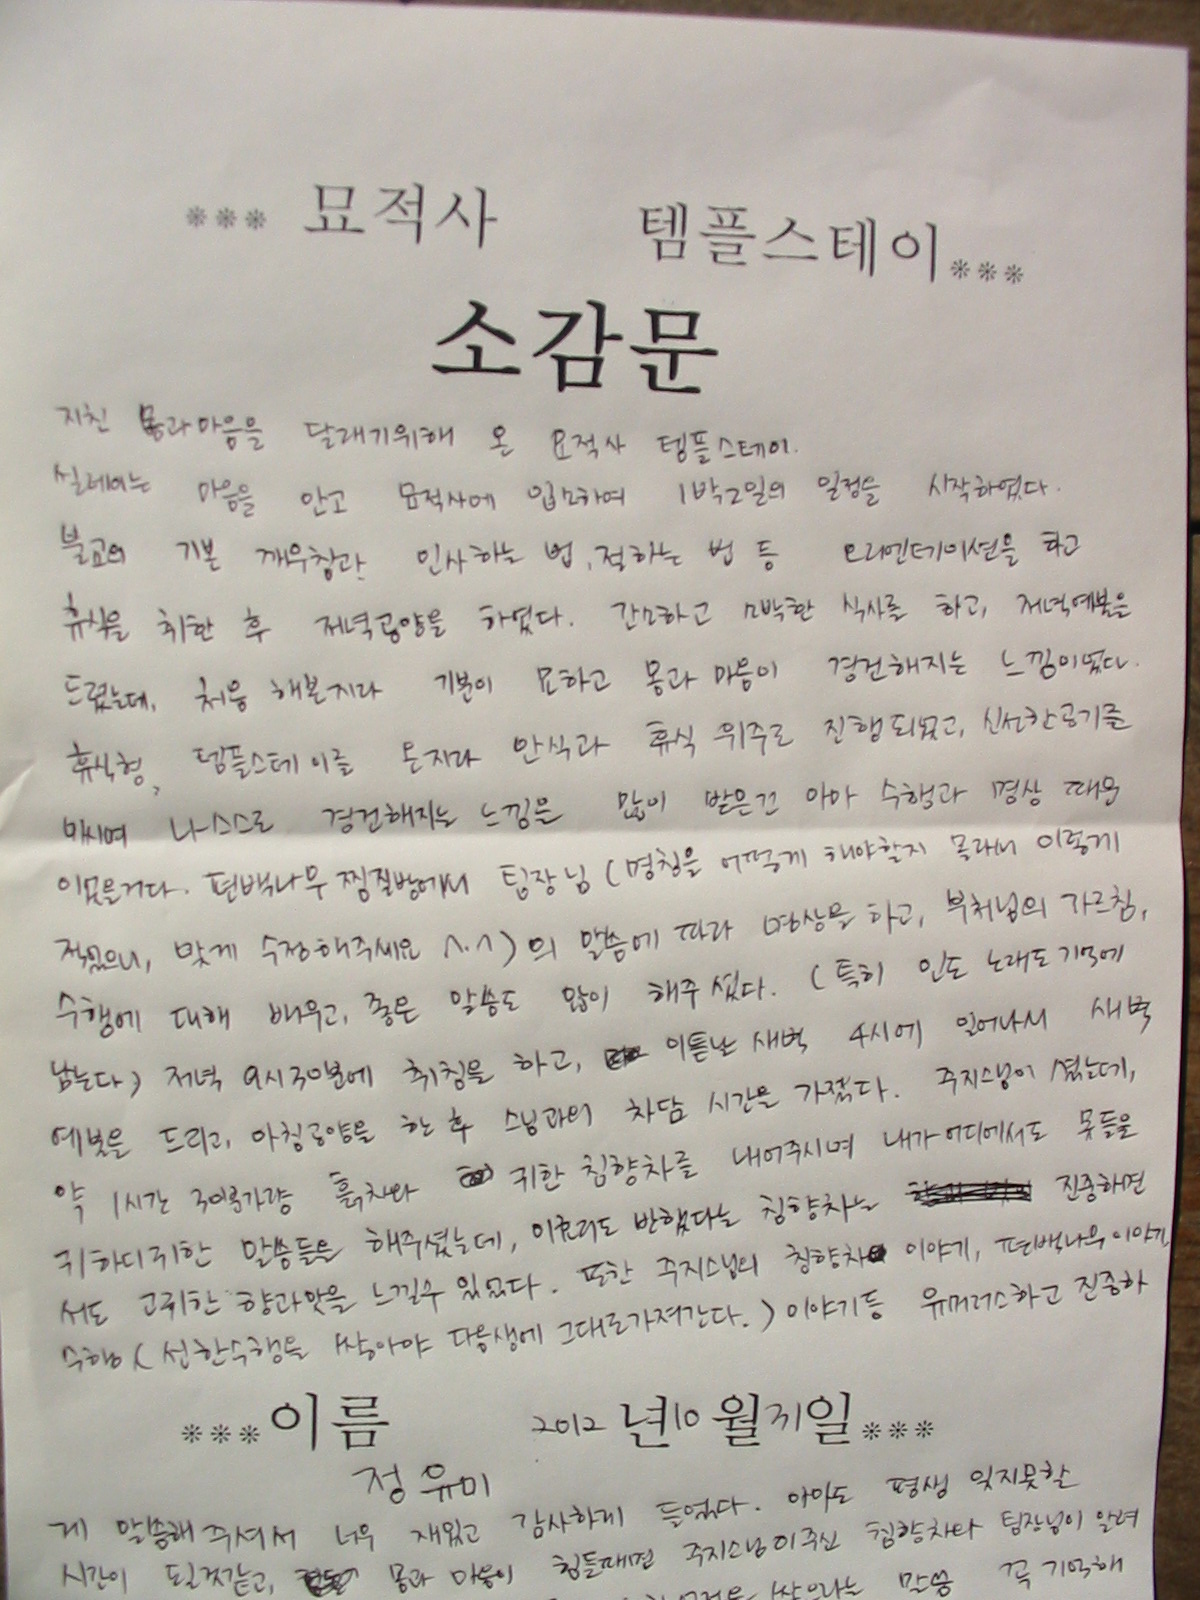 *** 묘적사 템플스테이 ***
소감문
지친 몸과 마음을 달래기위해 온 묘적사 템플스테이.
설레이는 마음을 안고 묘적사에 입소하여 1박2일의 일정을 시작하였다.
불교의 기본 인사하는 법, 절하는 법 등 오리엔테이션을 하고
휴식을 취한 후 저녁공양을 하였다. 간소하고 소박한 식사를 하고, 저녁예불을
드렸는데, 처음 해본지라 기분이 묘하고 몸과 마음이 경건해지는 느낌이었다.
휴식형 템플스테이를 온지라 안식과 휴식 위주로 진행되었고, 신선한공기를
마시며 나스스로 경건해지는 느낌을 많이 받은건 아마 수행과 명상 때문
이었을거다. 편백나무 찜질방에서 팀장님 (명칭을 어떻게 해야할지 몰라서 이렇게
적었으니, 맞게 수정해주세요 ^.^)의 말씀에 따라 명상을 하고, 부처님의 가르침,
수행에 대해 배우고, 좋은 말씀도 많이 해주셨다. (특히 인도 노래도 기억에
남는다) 저녁 9시30분에 취침을 하고, 이튿날 새벽 4시에 일어나서 새벽
예불을 드리고, 아침공양을 한 후 스님과의 차담 시간을 가졌다. 주지스님이 셨는데,
약 1시간 30분가량 흙차와 귀한 침향차를 내어주시며 내가 어디에서도 못들을
귀하디귀한 말씀들을 해주셨는데, 이효리도 반했다는 침향차는 진중하면
서도 고귀한 향과맛을 느낄수 있었다. 또한 주지스님의 침향차 이야기, 편백나무 이야기
수행 (선한수행을 쌓아야 다음생에 그대로가져간다.) 이야기등 유머러스하고 진중하
*** 이름 2012 년 10 월 31 일 ***
정유미
게 말씀해 주셔서 너무 재밌고 감사하게 들었다. 아마도 평생 잊지못할
시간이 될것같고, 몸과 마음이 힘들때면 주지스님이주신 침향차와 팀장님이 알려
쌓으라는 말씀 꼭 기억해